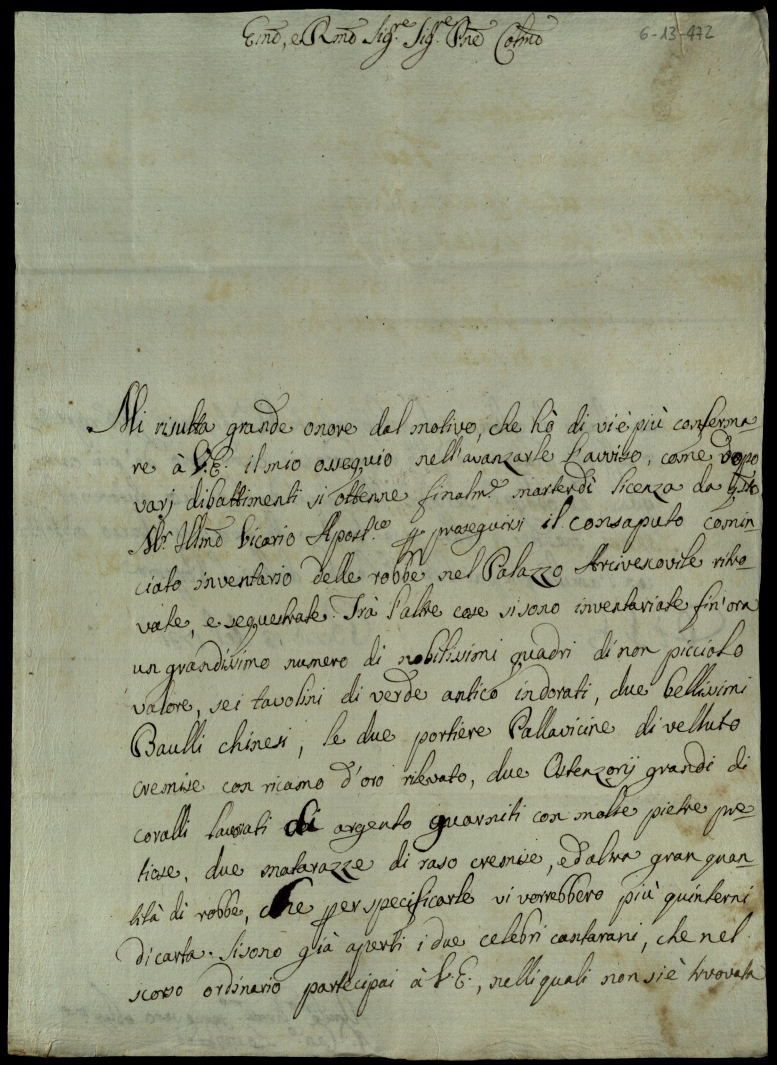 Emô, e Rmô Sig.re Sig.re Pnê Colmô
6-13-472
Mi risulta grande onore dal motivo, che hò di vi è più conferma-
re à V.E. il mio ossequio nell'avanzarle l'avviso, come dopo
varj dibattimenti si ottenne finalm.e marterdì licenza da qsto
Mr. Illmô Vicario Apost.co per proseguirsi il consaputo comin-
ciato inventario delle robbe nel Palazzo Arcivescovile ritro-
vate, e sequestrate. Trà l'altre cose si sono inventariate fin'ora
un grandissimo numero di nobilissimi quadri di non picciolo
valore, sei tavolini di verde antico indorati, due bellissimi
Baulli chinesi, le due portiere Pallavicine di velluto
cremise con ricamo d'oro rilevato, due Ostenzorij grandi di
coralli lavorati di argento guarniti con molte pietre pre-
tiose, due matarazze di raso cremise, ed altra gran quan-
tità di robbe, che per specificarle vi vorrebbero più quinterni
di carta. Si sono già aperti i due celebri cantarani, che nel
scorso ordinario partecipai à V.E., nelli quali non si è trovata